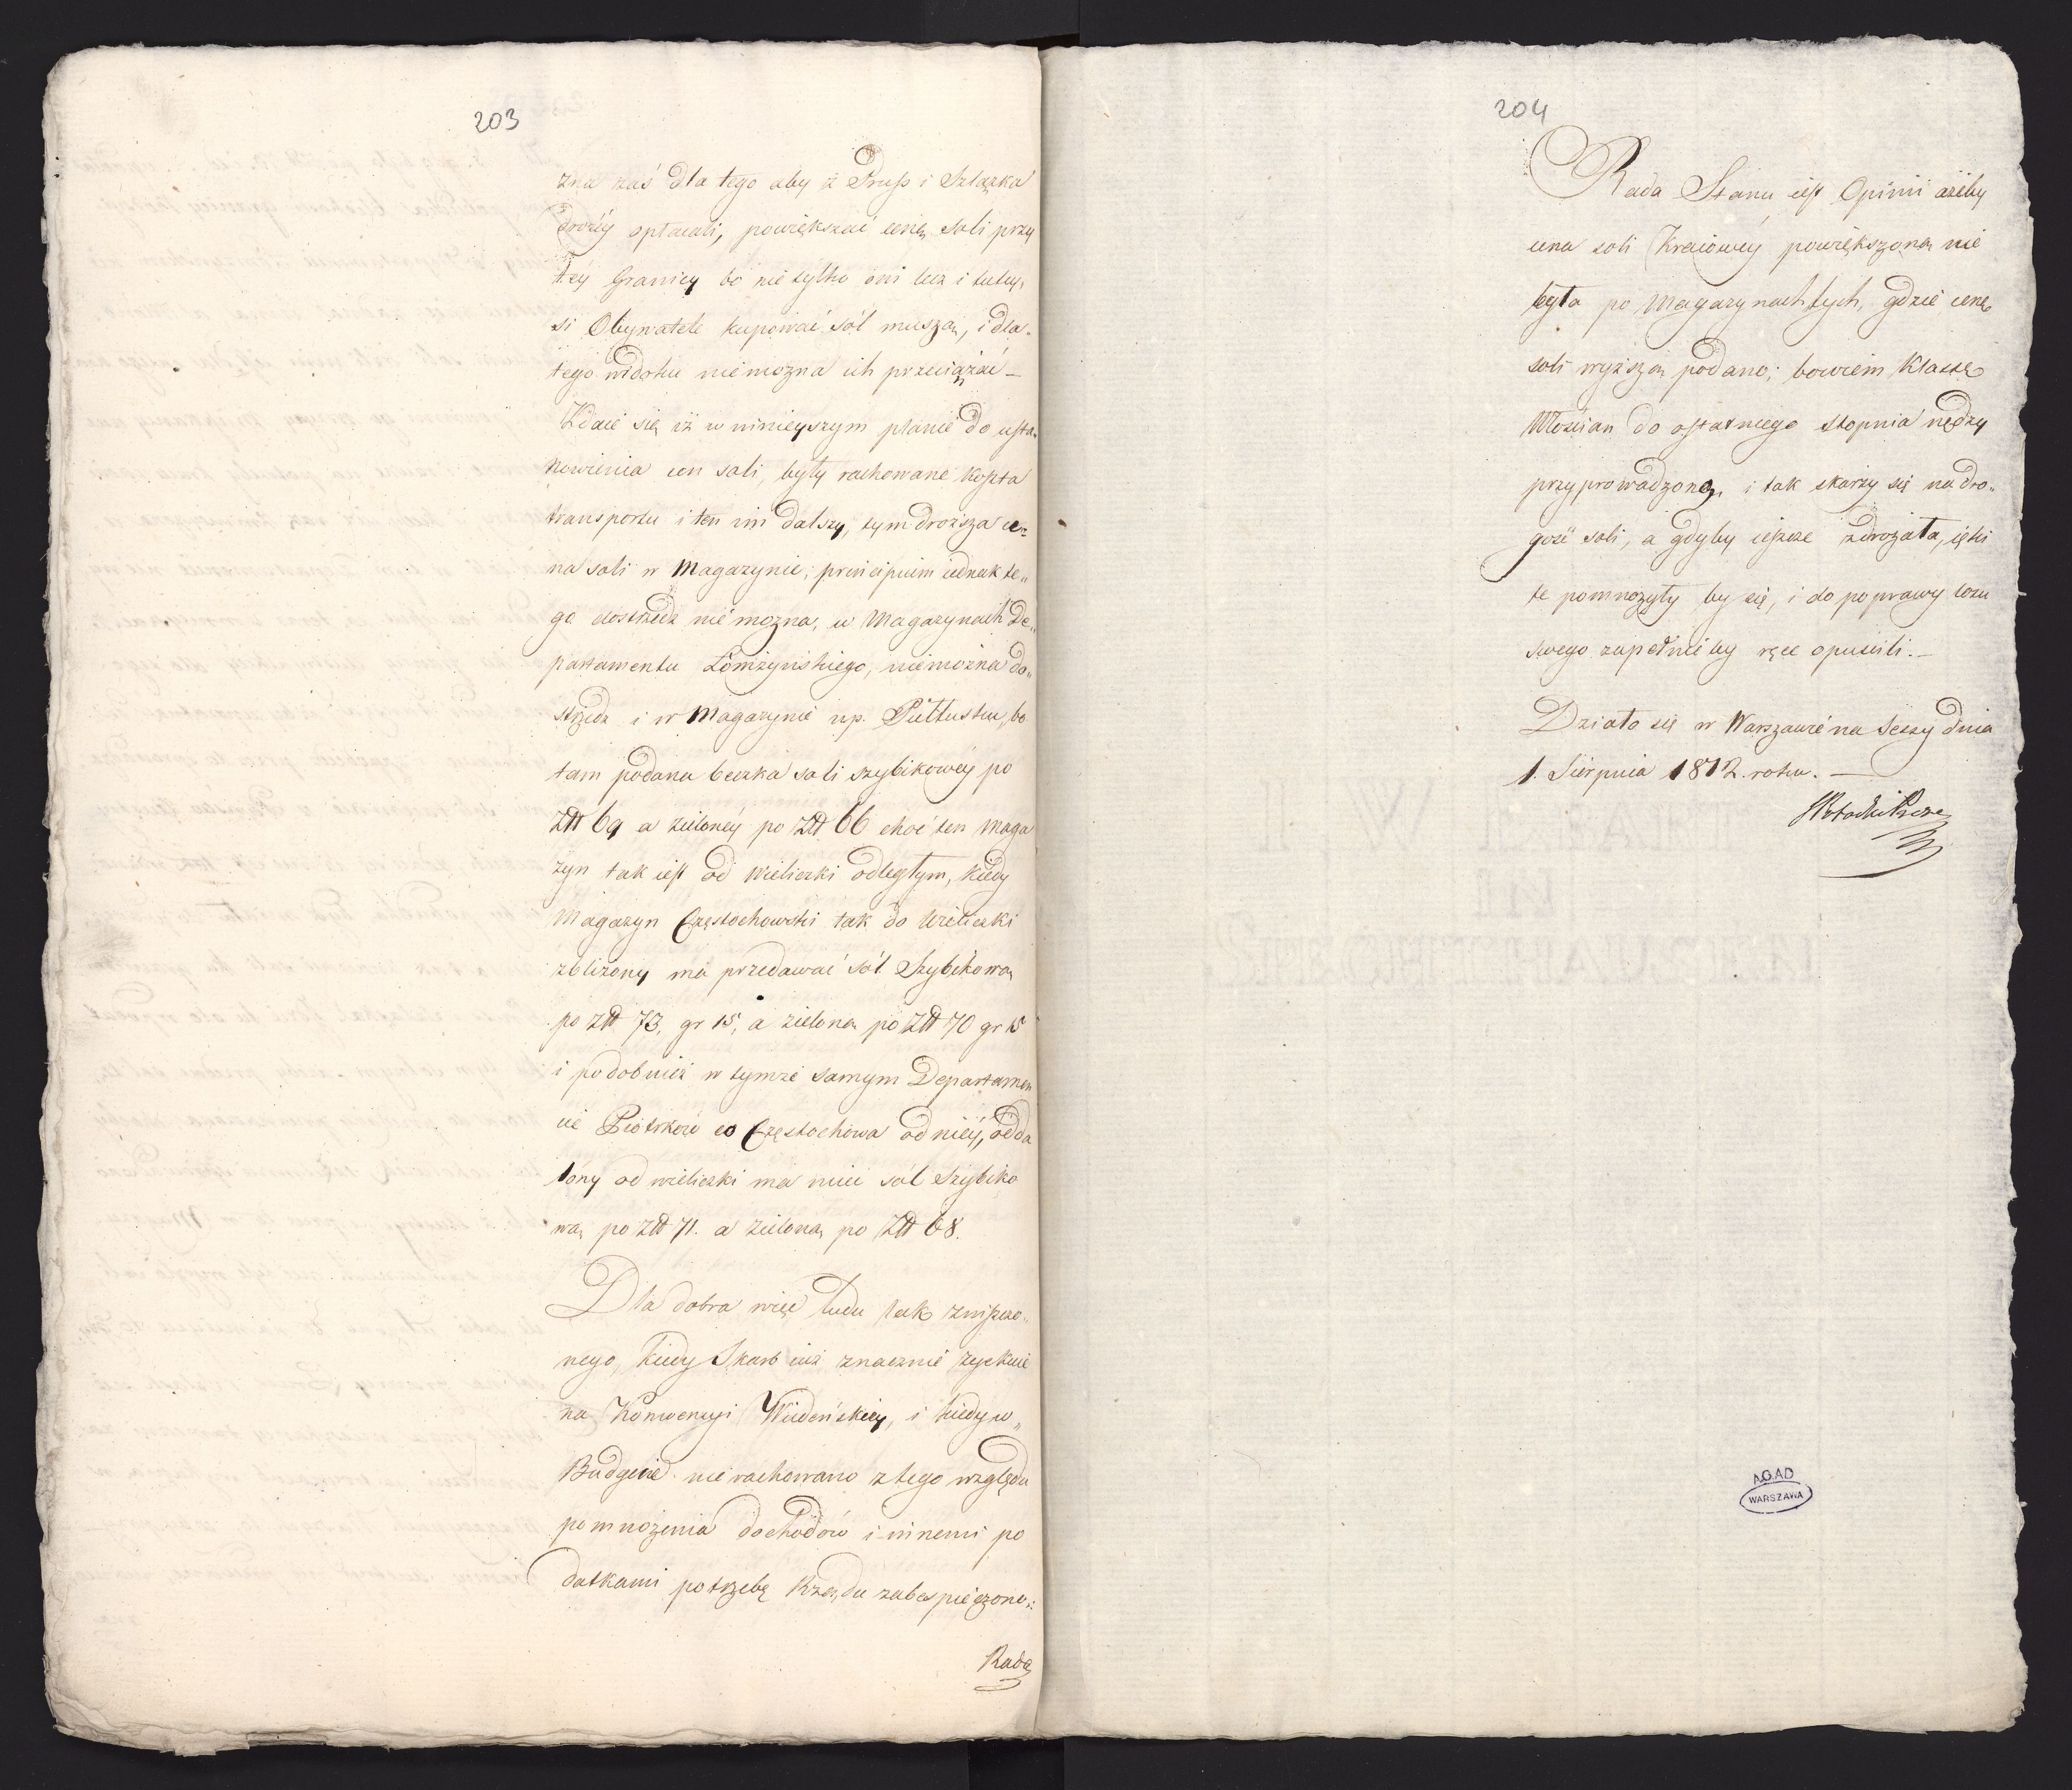 203
zna zaś dla tego aby z Pruss i Szlązka
drożéy opłacali, powiększać cenę soli przy
téy Granicy bo nie tylko oni lecz i tutey,
si Obywatele kupować sól muszą, i dla„
tego widoku niemożna ich przeciążać —
Zdaie się iż w ninieyszym planie do usta„
nowienia cen soli, były rachowane koszta
transportu i ten im dalszy, tym droższa ce„
na soli w Magazynie; principium iednak te„
go dostrzedz niemożna, w Magazynach De„
partamentu Łomżyńskiego, niemożna do„
strzedz i w Magazynie np. Pułtusku, bo
tam podana beczka soli szybikowéy po
Złł 69 a zielonéy po Złł 66 choć ten Maga
zyn tak iest od Wieliczki odległym, kiedy
Magazyn Częstochowski tak do Wieliczki
zbliżony ma przedawać sól Szybikową
po Złł 73, gr 15, a zieloną po Złł 70 gr 15
i podobnież w tymże samym Departamen
cie Piotrków co Częstochowa od niéy, odda
lony od Wieliczki ma mieć sól Szybiko
wą po Złł 71. a zieloną po Złł 68.
Dla dobra więc ludu tak zniszczo„
nego, kiedy Skarb iuż znacznie zyskuie
na Konwencyi Wiedeńskiéy, i kiedy w„
Budgecie nie rachowano z tego względu
pomnożenia dochodów i innemi po
datkami potrzebę Rządu zabespieczono„:
Rada
204
Rada Stanu iest Opinii ażeby
cena soli Kraiowéy powiększoną nie
była po Magazynach tych, gdzie cenę
soli wyższą podano; bowiem Klassę
Włościan do ostatniego stopnia nędzy
przyprowadzoną, i tak skarży się na dro„
gość soli, a gdyby ieszcze zdrożała, ięki
te pomnożyły by się, i do poprawy losu
swego zupełnie by ręce opuścili. —
Działo się w Warszawie na Sessy dnia
1. Sierpnia 1812. roku. —
A.G.A.D
WARSZAWA